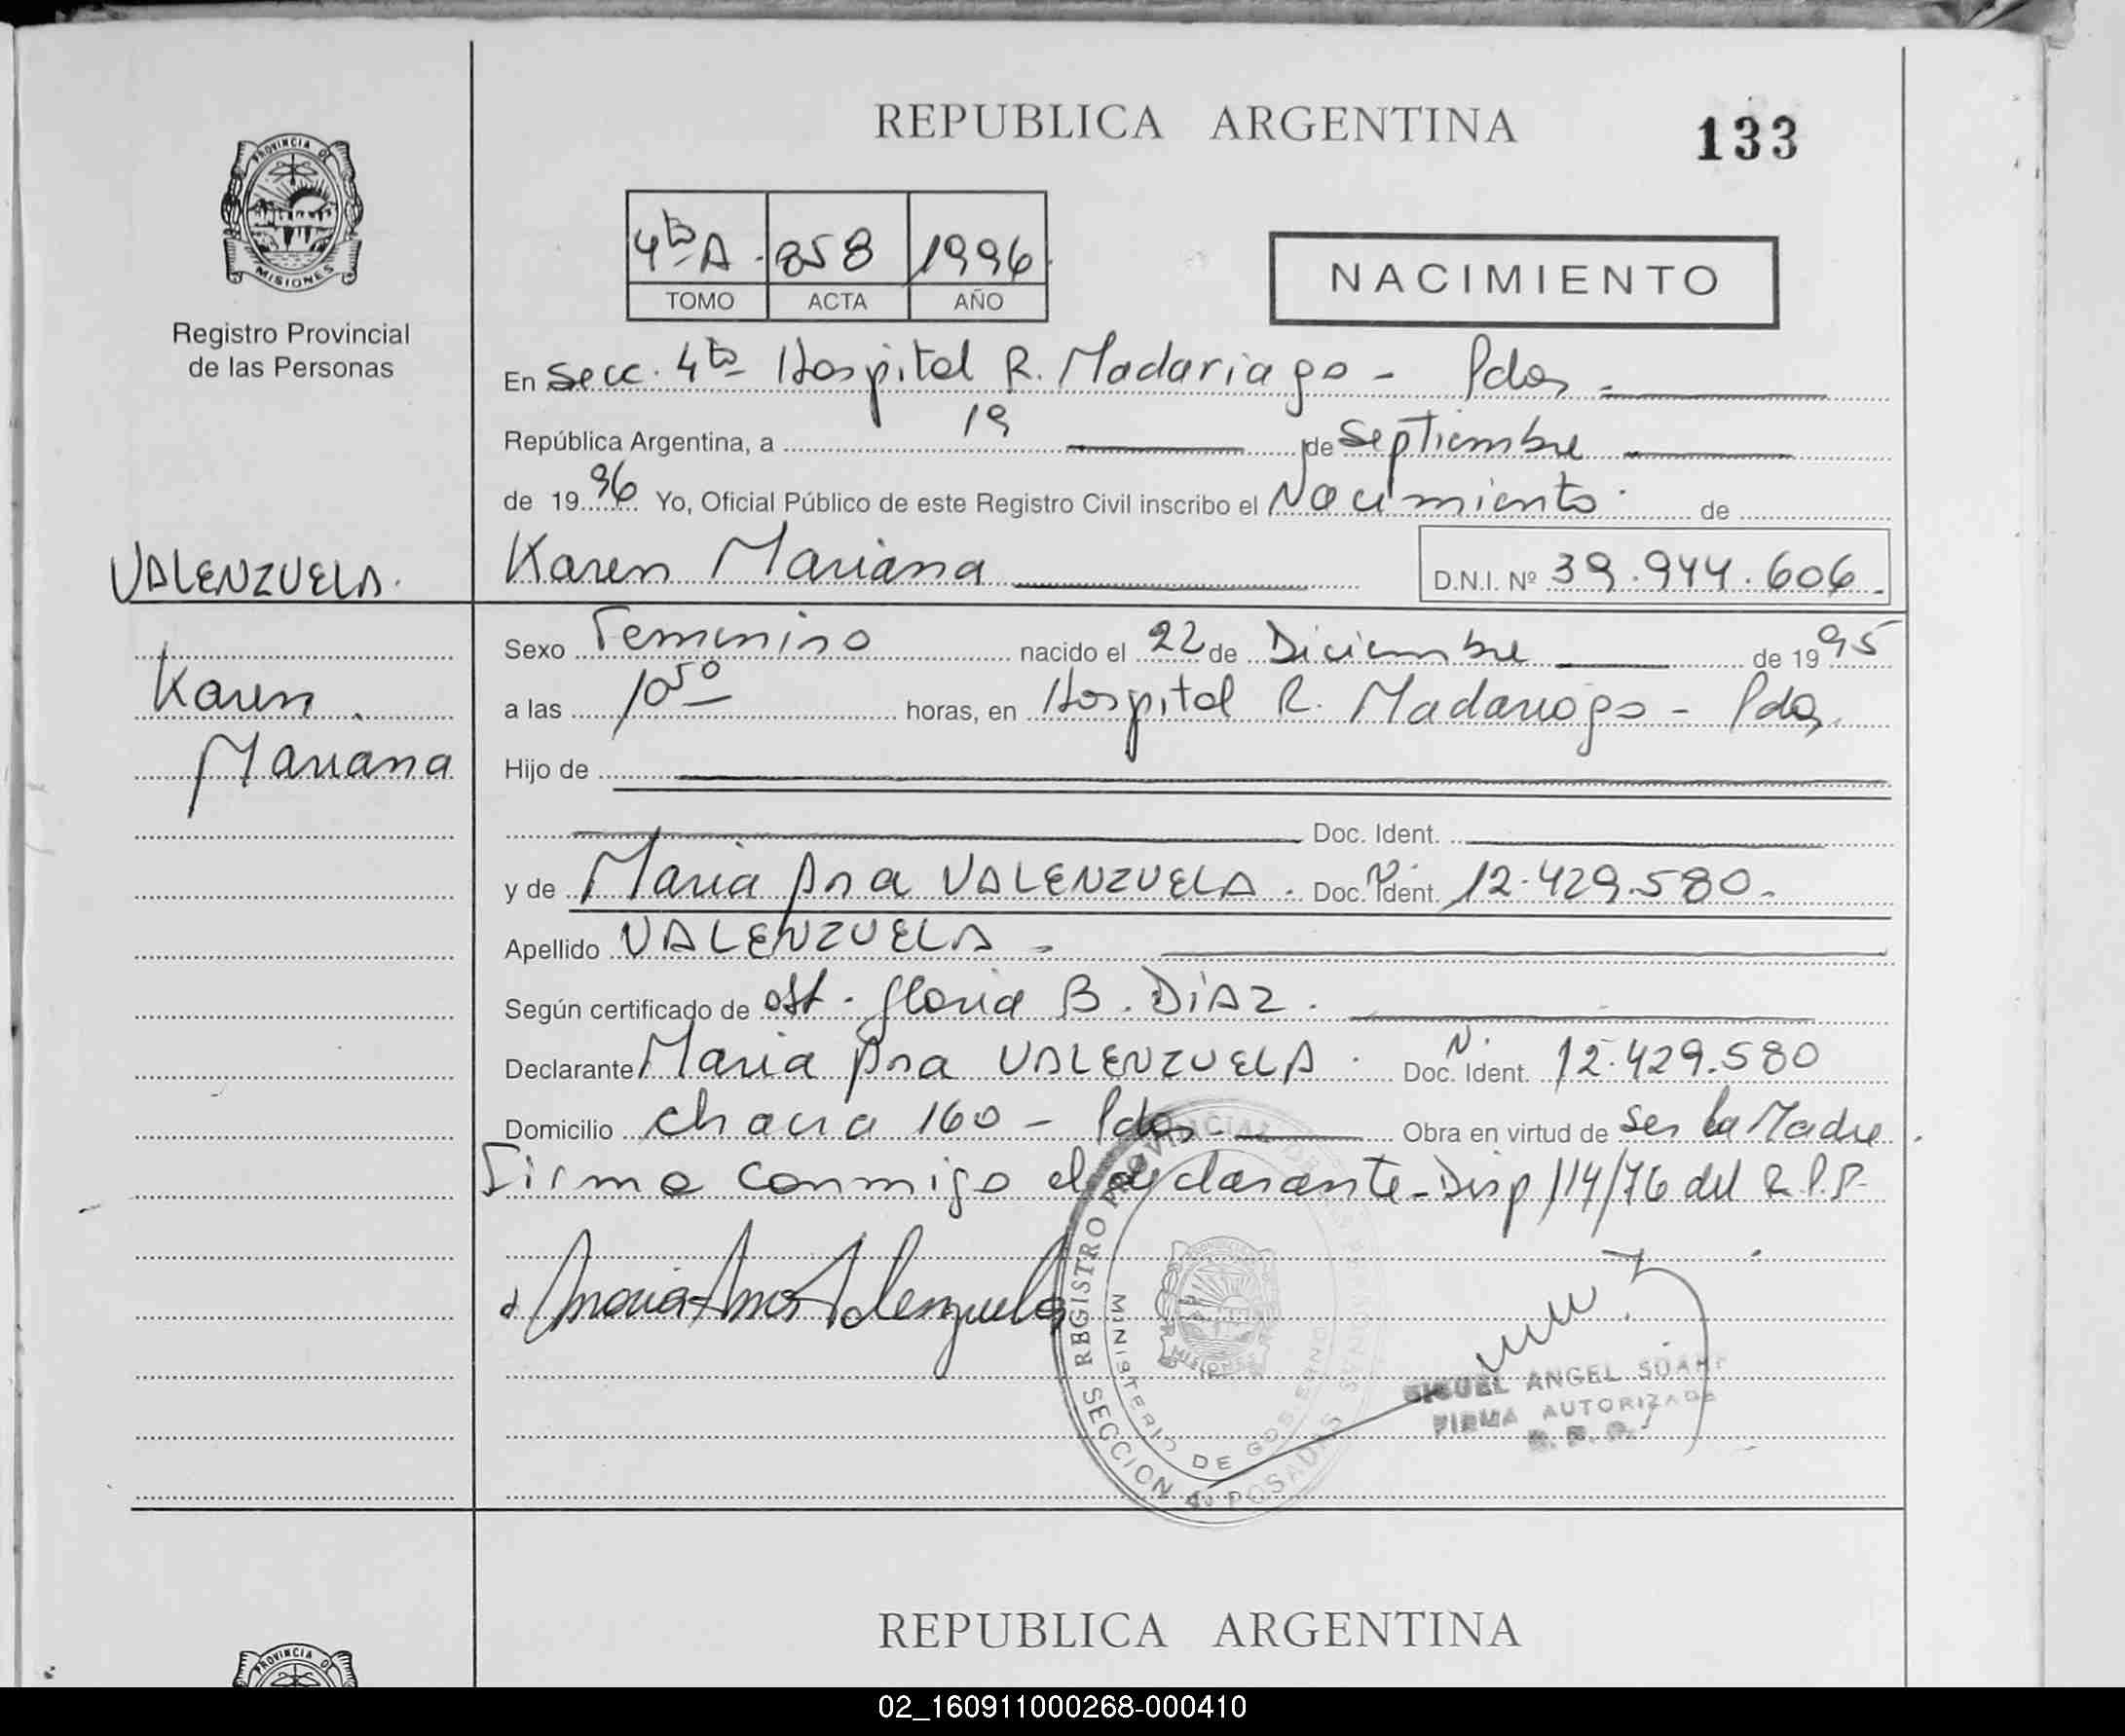 REPUBLICA ARGENTINA
133
PROVINCIA DE
MISIONES
Registro Provincial
de las Personas
4ta A. 858 1996
TOMO ACTA AÑO
NACIMIENTO
En Secc. 4ta Hospital R. Madariaga - Pdas -
República Argentina, a 19 de Septiembre
de 1996 Yo, Oficial Público de este Registro Civil inscribo el Nacimiento de
VALENZUELA
Karen Mariana D.N.I. Nº 39.944.606
Karen
Mariana
Sexo Femenino nacido el 22 de Diciembre de 1995
a las 10 50 horas, en Hospital R. Madariaga - Pdas.
Hijo de
Doc. Ident.
y de Maria Ana VALENZUELA. Doc. Ident. N. 12.429.580.
Apellido VALENZUELA
Según certificado de Obst. Gloria B. DIAZ.
Declarante Maria Ana VALENZUELA. Doc. Ident. N. 12.429.580
Domicilio Chacra 160 - Pdas - Obra en virtud de Ser la Madre.
Firma conmigo el declarante - Disp 114/76 del R.P.P.
Maria Ana Valenzuela
REGISTRO PROVINCIAL DE LAS PERSONAS
MINISTERIO DE GOBIERNO
MISIONES
SECCION 4a POSADAS
MIGUEL ANGEL
FIRMA AUTORIZADA
REPUBLICA ARGENTINA
PROVINCIA DE
02_160911000268-000410